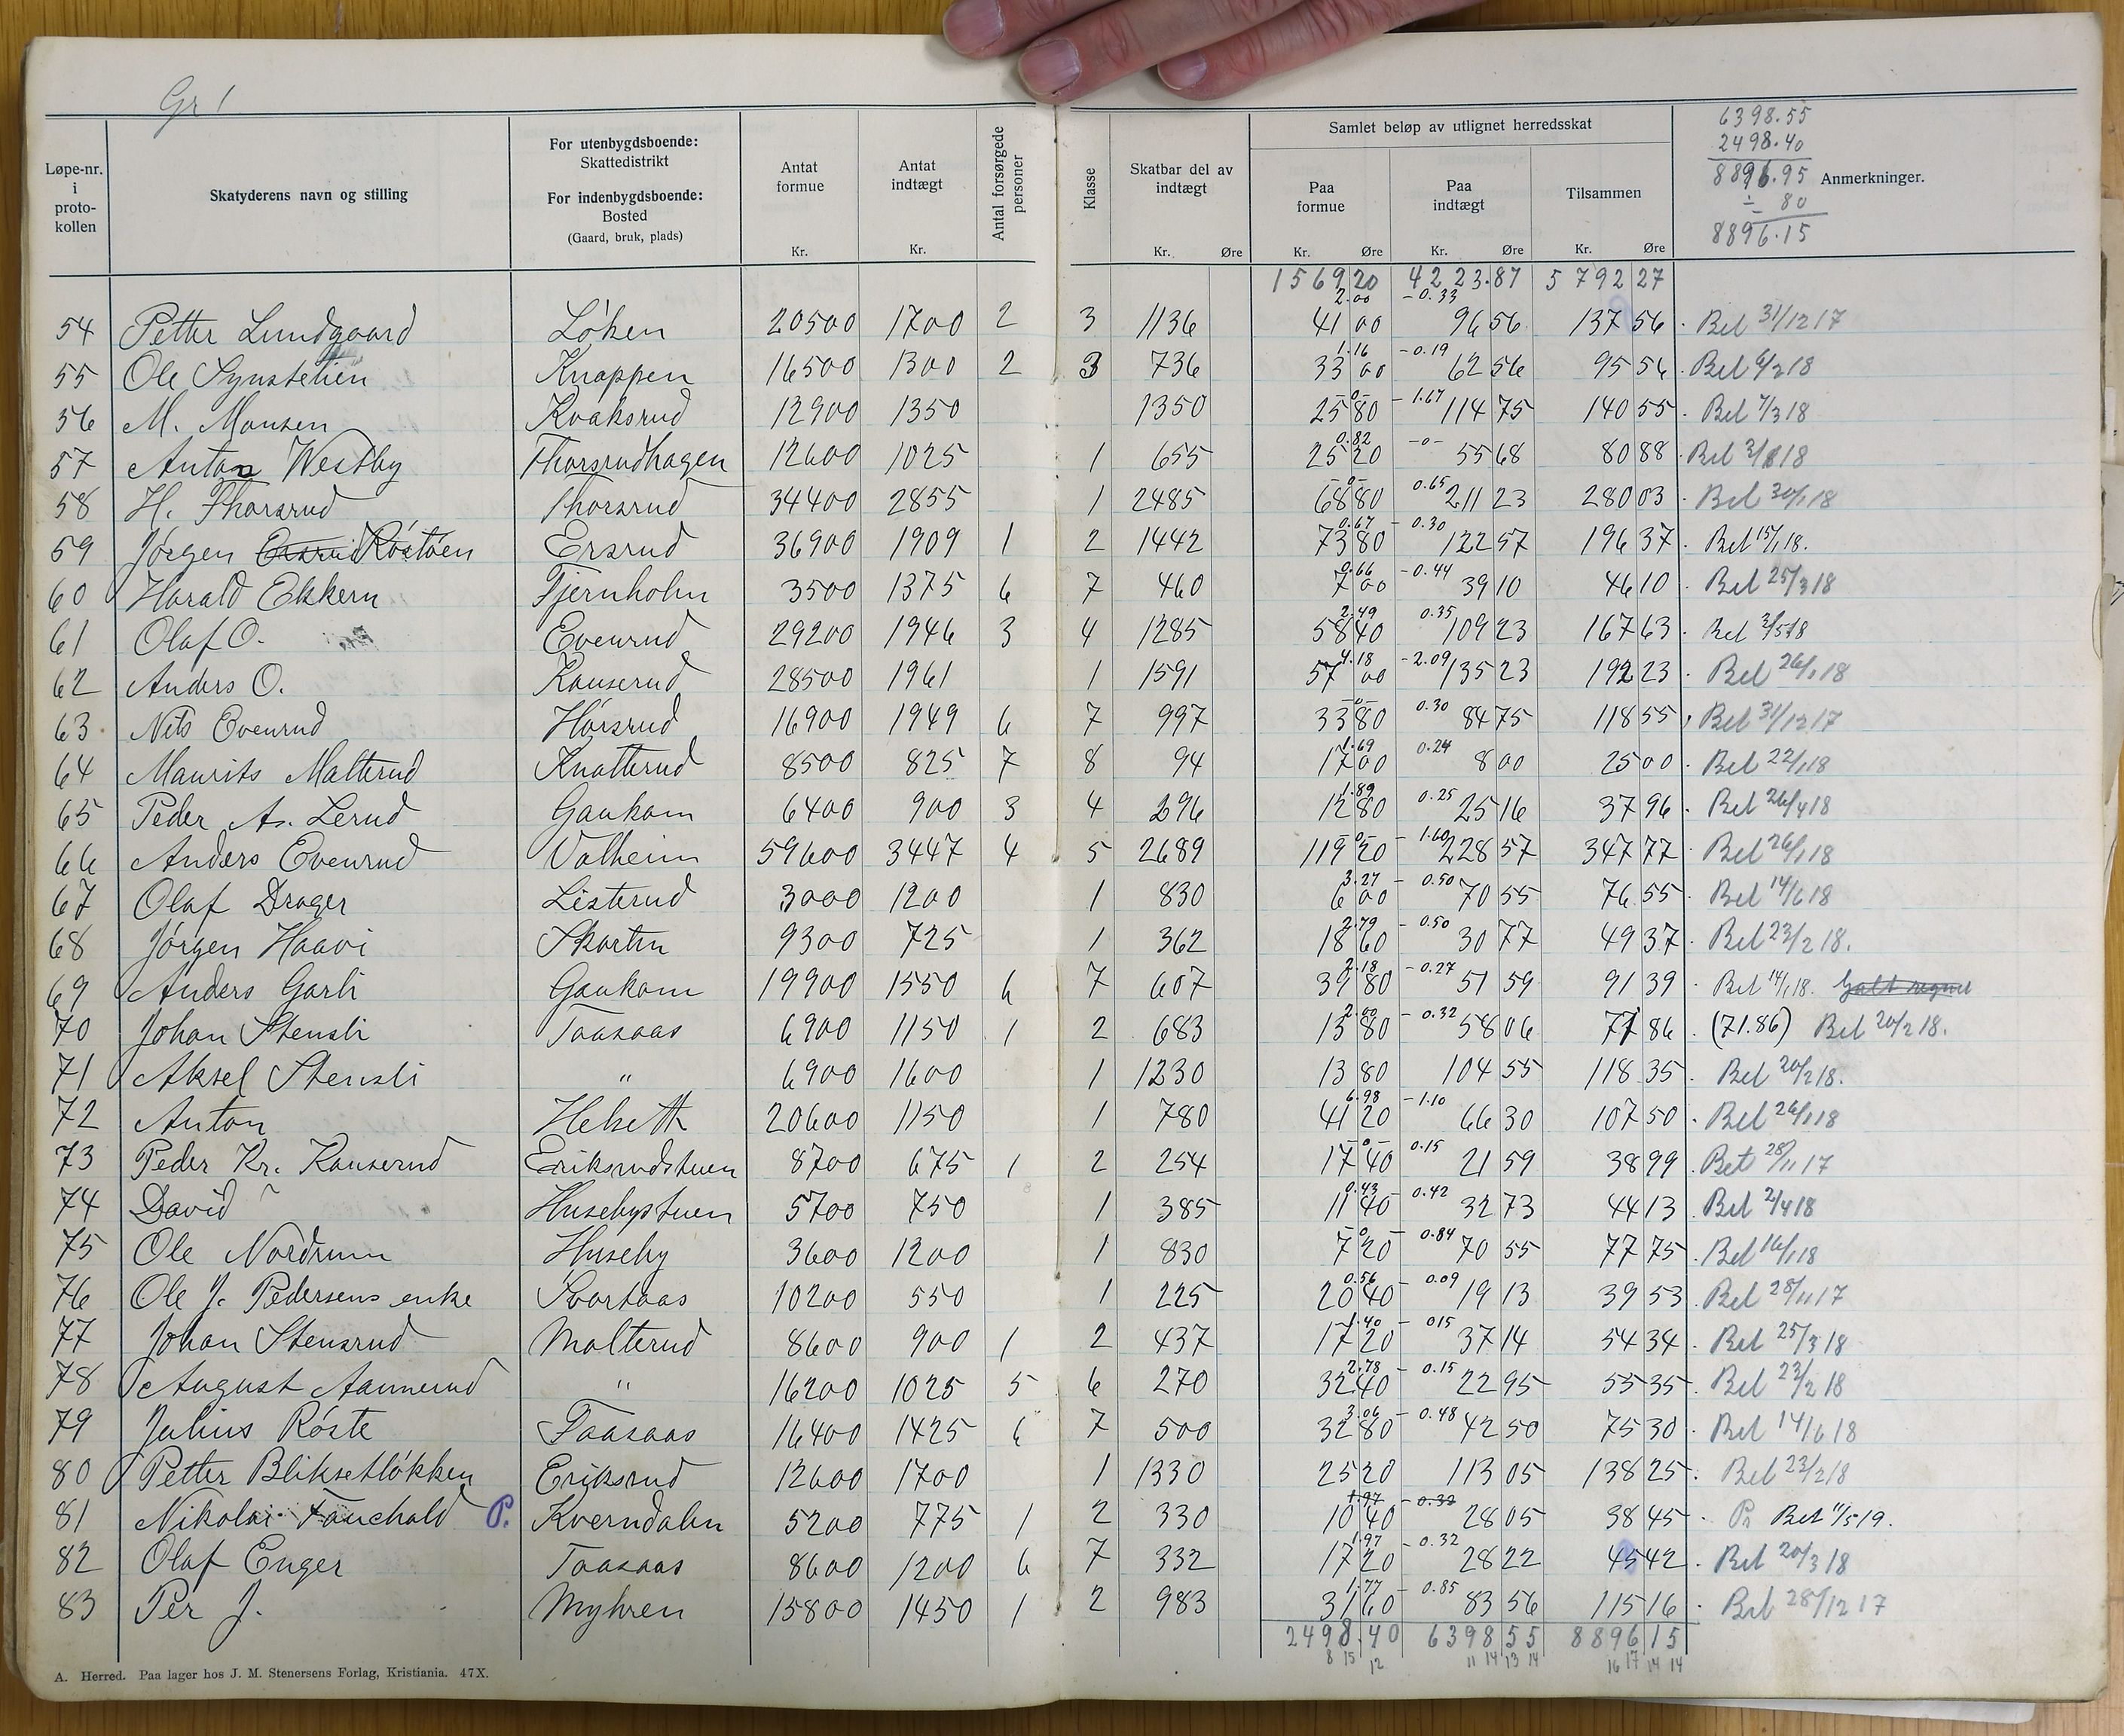 Gr 1
6398.55
2498.40
8896.95
÷ 80
8896.15
Løpe-nr. i proto-kollen
Skatyderens navn og stilling
For utenbygdsboende: Skattedistrikt
For indenbygdsboende: Bosted (Gaard, bruk, plads)
Antat formue Kr.
Antat indtægt Kr.
Antal forsørgede personer
Klasse
Skatbar del av indtægt Kr. Øre
Samlet beløp av utlignet herredsskat
Paa formue Kr. Øre
Paa indtægt Kr. Øre
Tilsammen Kr. Øre
Anmerkninger.
1569 20 4223.87 5792 27
54 Petter Lundgaard Löken 20500 1700 2 3 1136 2.00 41 00 - 0.33 96 56 137 56 Bet 31/12 17
55 Ole Synstelien Knappen 16500 1300 2 3 736 1.16 33 00 - 0.19 62 56 95 56 Bet 6/2 18
56 M. Monsen Kvaksrud 12900 1350 1350 -0- 25 80 - 1.67 114 75 140 55 Bet 7/3 18
57 Anton Westby Thorsrudhagen 12600 1025 1 655 0.82 25 20 -0- 55 68 80 88 Bet 18
58 H. Thorsrud Thorsrud 34400 2855 1 2485 -0- 68 80 0.65 211 23 280 03 Bet 30/1 18
59 Jörgen Ersrud Röstöen Ersrud 36900 1909 1 2 1442 0.67 73 80 - 0.30 122 57 196 37 Bet 15/1 18.
60 Harald Ekkern Tjernholm 3500 1375 6 7 460 0.66 7 00 - 0.44 39 10 46 10 Bet 25/3 18
61 Olaf O. Evenrud 29200 1946 3 4 1285 2.49 58 40 0.35 109 23 167 63 Bet 3/5 18
62 Anders O. Kauserud 28500 1961 1 1591 4.18 57 00 - 2.09 135 23 192 23 Bet 26/1 18
63 Nils Evenrud Hörsrud 16900 1949 6 7 997 -0- 33 80 0.30 84 75 118 55 Bet 31/12 17
64 Maurits Malterud Knatterud 8500 825 7 8 94 1.69 17 00 0.24 8 00 25 00 Bet 22/1 18
65 Peder As. Lerud Gaukom 6400 900 3 4 296 1.89 12 80 0.25 25 16 37 96 Bet 26/4 18
66 Anders Evenrud Valheim 59600 3447 4 5 2689 -0- 119 20 - 1.60 228 57 347 77 Bet 26/1 18
67 Olaf Drager Listerud 3000 1200 1 830 3.27 6 00 - 0.50 70 55 76 55 Bet 14/6 18
68 Jörgen Haavi Skartin 9300 725 1 362 2.79 18 60 - 0.50 30 77 49 37 Bet 23/2 18.
69 Anders Garli Gaukom 19900 1550 6 7 607 2.18 39 80 - 0.27 51 59 91 39 Bet 14/1 18. Galt regnet
70 Johan Stensli Taasaas 6900 1150 1 2 683 2.00 13 80 - 0.32 58 06 77 86 (71.86) Bet 20/2 18.
71 Aksel Stensli " 6900 1600 1 1230 13 80 104 55 118 35 Bet 20/2 18.
72 Anton Helseth 20600 1150 1 780 6.98 41 20 - 1.10 66 30 107 50 Bet 26/1 18
73 Peder Kr. Kauserud Eriksrudstuen 8700 675 1 2 254 -0- 17 40 0.15 21 59 38 99 Bet 28/11 17
74 David Husebystuen 5700 750 1 385 0.43 11 40 0.42 32 73 44 13 Bet 2/4 18
75 Ole Nordrum Huseby 3600 1200 1 830 -0- 7 20 - 0.84 70 55 77 75 Bet 16/1 18
76 Ole J. Pedersens enke Svartaas 10200 550 1 225 0.56 20 40 - 0.09 19 13 39 53 Bet 28/11 17
77 Johan Stensrud Malterud 8600 900 1 2 437 1.40 17 20 - 015 37 14 54 34 Bet 25/3 18
78 August Aannerud " 16200 1025 5 6 270 2.78 32 40 - 0.15 22 95 55 35 Bet 23/2 18
79 Julius Röste Taasaas 16400 1425 6 7 500 3.06 32 80 - 0.48 42 50 75 30 Bet 14/6 18
80 Petter Bliksetlökken Eriksrud 12600 1700 1 1330 25 20 113 05 138 25 Bet 23/2 18
81 Nikolai Fauchald P. Kverndalen 5200 775 1 2 330 1.97 10 40 - 0.32 28 05 38 45 P. Bet 11/5 19.
82 Olaf Enger Taasaas 8600 1200 6 7 332 1.97 17 20 - 0.32 28 22 45 42 Bet 20/3 18
83 Per J. Myhren 15800 1450 1 2 983 1.77 31 60 - 0.85 83 56 115 16 Bet 28/12 17
2498.40 6398 55 8896 15
8 15 12 11 14 13 14 16 17 14 14
A. Herred. Paa lager hos J. M. Stenersens Forlag, Kristiania. 47X.